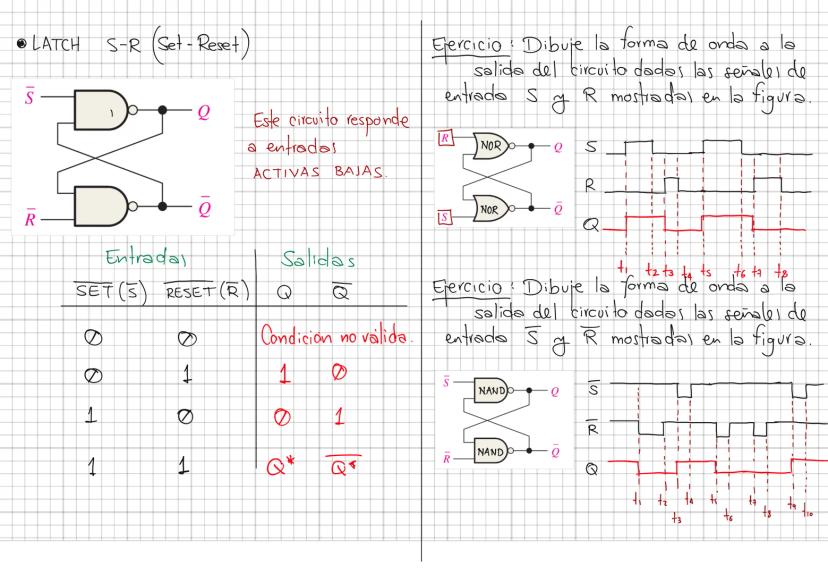 • LATCH S-R (Set-Reset)
S̅
Q
R̅
Q̅
1
Este circuito responde
a entradas
ACTIVAS BAJAS.
Entradas Salidas
S̅E̅T̅ (S̅) R̅E̅S̅E̅T̅ (R̅) Q Q̅
0 0 Condición no válida.
0 1 1 0
1 0 0 1
1 1 Q* Q̅*̅
Ejercicio: Dibuje la forma de onda a la
salida del circuito dadas las señales de
entrada S y R mostradas en la figura.
R NOR Q
S NOR Q̅
S
R
Q
t1 t2 t3 t4 t5 t6 t7 t8
Ejercicio: Dibuje la forma de onda a la
salida del circuito dadas las señales de
entrada S̅ y R̅ mostradas en la figura.
S̅ NAND Q
R̅ NAND Q̅
S̅
R̅
Q
t1 t2 t3 t4 t5 t6 t7 t8 t9 t10